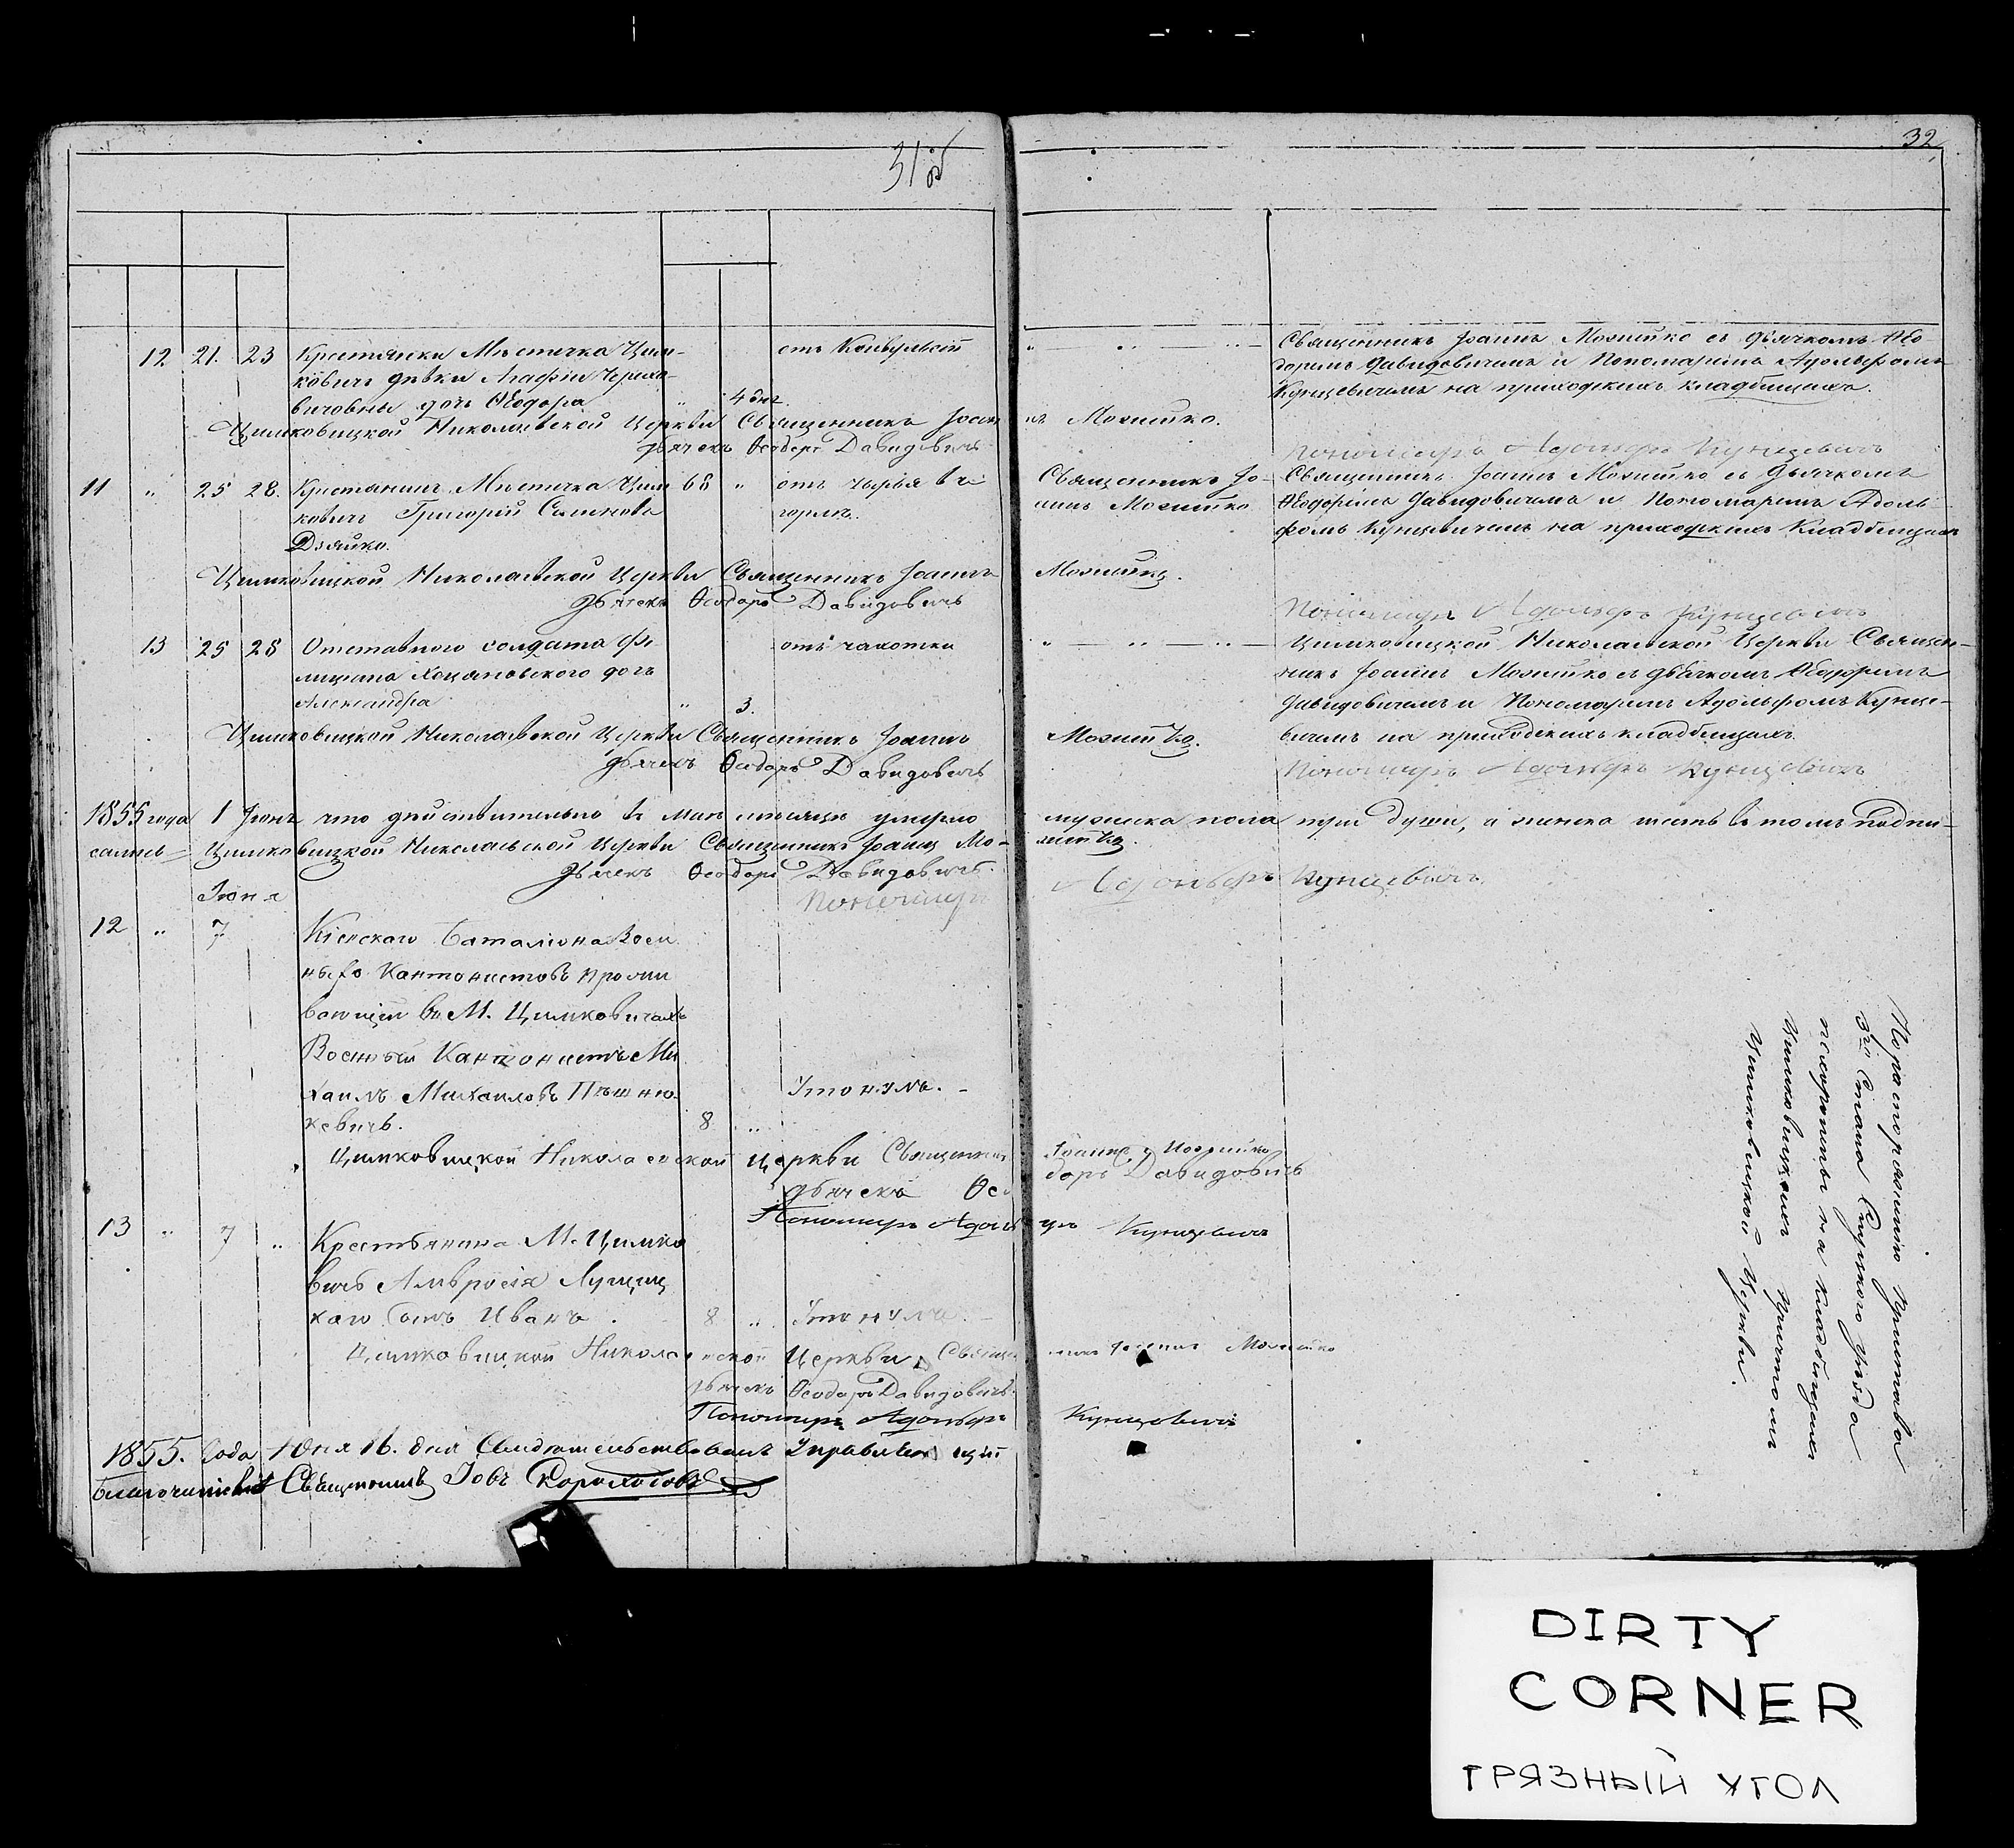 31 об
32
12 21. 23 Крестьянки Мѣстечка Цим-
ковичъ дѣвки Агафіи
дочь Ѳеодора „ 4 дн. отъ Конвульсіи
Священникъ Іоаннъ Можейко съ дьячкомъ Ѳео
доромъ Давидовичемъ и Пономаремъ Адольфомъ
Кунцевичемъ на приходскихъ кладбищахъ.
Цимковицкой Николаевской Церкви Священникъ Іоаннъ Можейко.
дьячекъ Ѳеодоръ Давидовичъ
Пономарь Адольфъ Кунцевичъ
11 „ 25 28. Крестьянинъ Мѣстечка Цим
ковичъ Григорій Семеновъ
Дзяйко. 68 „ отъ чырья въ
горлѣ.
Священникъ Іо-
аннъ Можейко
Священникъ Іоаннъ Можейко съ Дьячкомъ
Ѳеодоромъ Давидовичемъ и Пономаремъ Адоль
фомъ Кунцевичемъ на приходскихъ Кладбищахъ
Цимковицкой Николаевской Церкви Священникъ Іоаннъ Можейко.
дьячекъ Ѳеодоръ Давидовичъ
Пономарь Адольфъ Кунцевичъ
13 25 28 Отставного солдата Фе
лиціана дочь
Александра „ 3. отъ чахотки
Цимковицкой Николаевской Церкви Священ-
никъ Іоаннъ Можейко съ дьячкомъ Ѳеодоромъ
Давидовичемъ и Пономаремъ Адольфомъ Кунце-
вичемъ на приходскихъ кладбищахъ.
Цимковицкой Николаевской Церкви Священникъ Іоаннъ Можейко.
дьячекъ Ѳеодоръ Давидовичъ
Пономарь Адольфъ Кунцевичъ
1855 года 1 Іюнь что дѣйствительно въ Маѣ мѣсяцѣ умерло мужеска пола три души, а женска въ томъ подпи-
сались Цимковицкой Николаевской Церкви Священникъ Іоаннъ Можейко.
Дьячекъ Ѳеодоръ Давидовичъ.
Пономарь Адольфъ Кунцевичъ.
Іюня
12 „ 7 Кіевскаго Баталіона Воен
ныхъ Кантонистовъ прожи
вающій въ М. Цимковичахъ
Военный Кантонистъ Ми
хаилъ Михаиловъ
кевичъ. 8 „ Утонулъ.
Цимковицкой Николаевской Церкви Священникъ Іоаннъ Можейко
дьячекъ Ѳеодоръ Давидовичъ
Пономарь Адольфъ Кунцевичъ
13 „ 7 „ Крестьянина М. Цимко
вичь Амвросія
каго сынъ Иванъ. 8 „ Утонулъ.
Цимковицкой Николаевской Церкви Священникъ Іоаннъ Можейко
дьячекъ Ѳеодоръ Давидовичъ.
Пономарь Адольфъ Кунцевичъ
По распоряженію Пристава
3го Стана Слуцкого уѣзда
похоронены на кладбищахъ
Цимковицкихъ причтомъ
Цимковицкой Церкви.
1855. Года Іюня 16. дня Свидѣтельствовалъ Управляющій
Благочиніемъ Священникъ Іовъ
DIRTY
CORNER
ГРЯЗНЫЙ УГОЛ